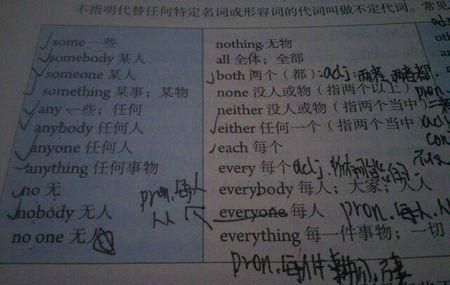 不指明代替任何特定名词或形容词的代词叫做不定代词。常见
some 一些
somebody 某人
someone 某人
something 某事；某物
any 一些；任何
anybody 任何人
anyone 任何人
anything 任何事物
no 无
nobody 无人
no one 无人
pron. 每人
nothing 无物
all 全体；全部
both 两个（都） adj: 两者
none 没人或物（指两个以上）
neither 没人或物（指两个当中）
either 任何一个（指两个当中）
each 每个
every 每个 adj.
everybody 每人；大家；人人
everyone 每人 pron. 每人
everything 每一件事物；一切
pron. 每件